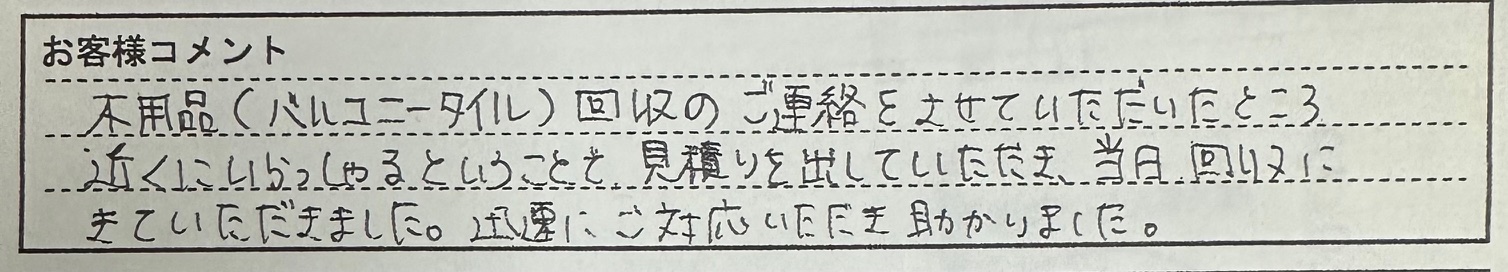 お客様コメント
不用品(バルコニータイル)回収のご連絡をさせていただいたところ
近くにいらっしゃるということで、見積りを出していただき、当日回収に
きていただきました。迅速にご対応いただき助かりました。